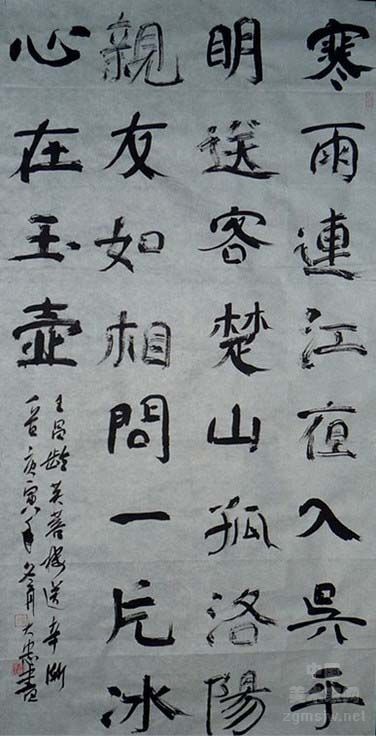 寒雨連江夜入吳平
明送客楚山孤洛陽
親友如相問一片冰
心在玉壺
王昌齡芙蓉樓送辛漸
一首庚寅年冬月大忠書
zgmsw.net